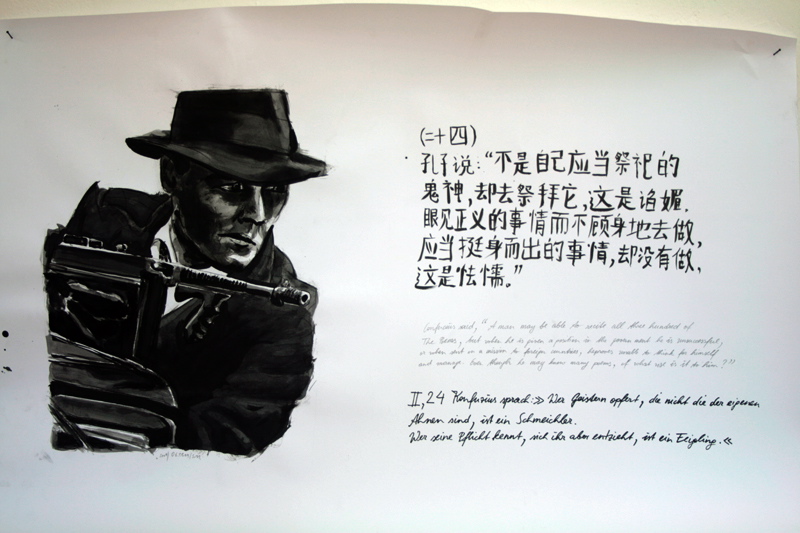 (二十四)
孔子说:“不是自己应当祭祀的
鬼神,却去祭拜它,这是谄媚.
眼见正义的事情而不顾身地去做,
应当挺身而出的事情,却没有做,
这是怯懦。”
Confucius said, "A man may be able to recite all three hundred of
The Books, but when he is given a position in the government he is unsuccessful,
or when sent on a mission to foreign countries, he proves unable to think for himself
and manage. Even though he may know many poems, of what use is it to him?"
II, 24 Konfuzius sprach: » Wer Geistern opfert, die nicht die der eigenen
Ahnen sind, ist ein Schmeichler.
Wer seine Pflicht kennt, sich ihr aber entzieht, ist ein Feigling. «